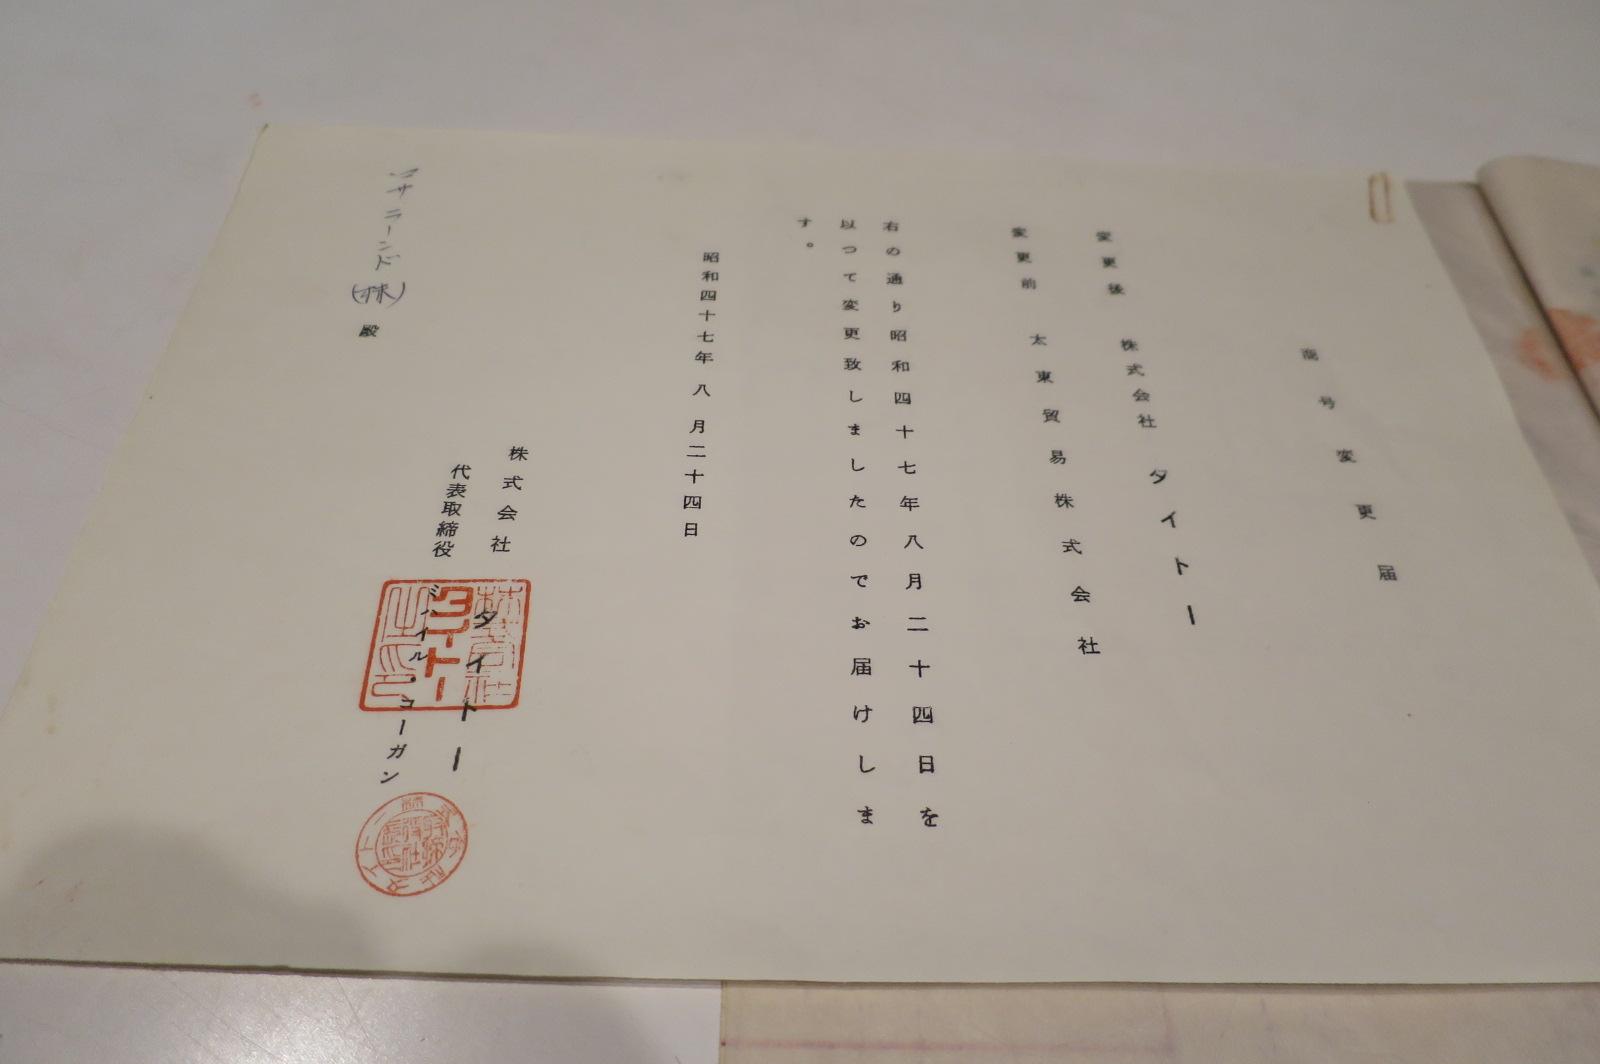 商号変更届
変更後 株式会社 タイトー
変更前 太東貿易株式会社
右の通り昭和四十七年八月二十四日を
以つて変更致しましたのでお届けしま
す。
昭和四十七年八月二十四日
株式会社 タイトー
代表取締役 ミハイル・コーガン
サニーランド(株) 殿
株式会社
タイトー
之印